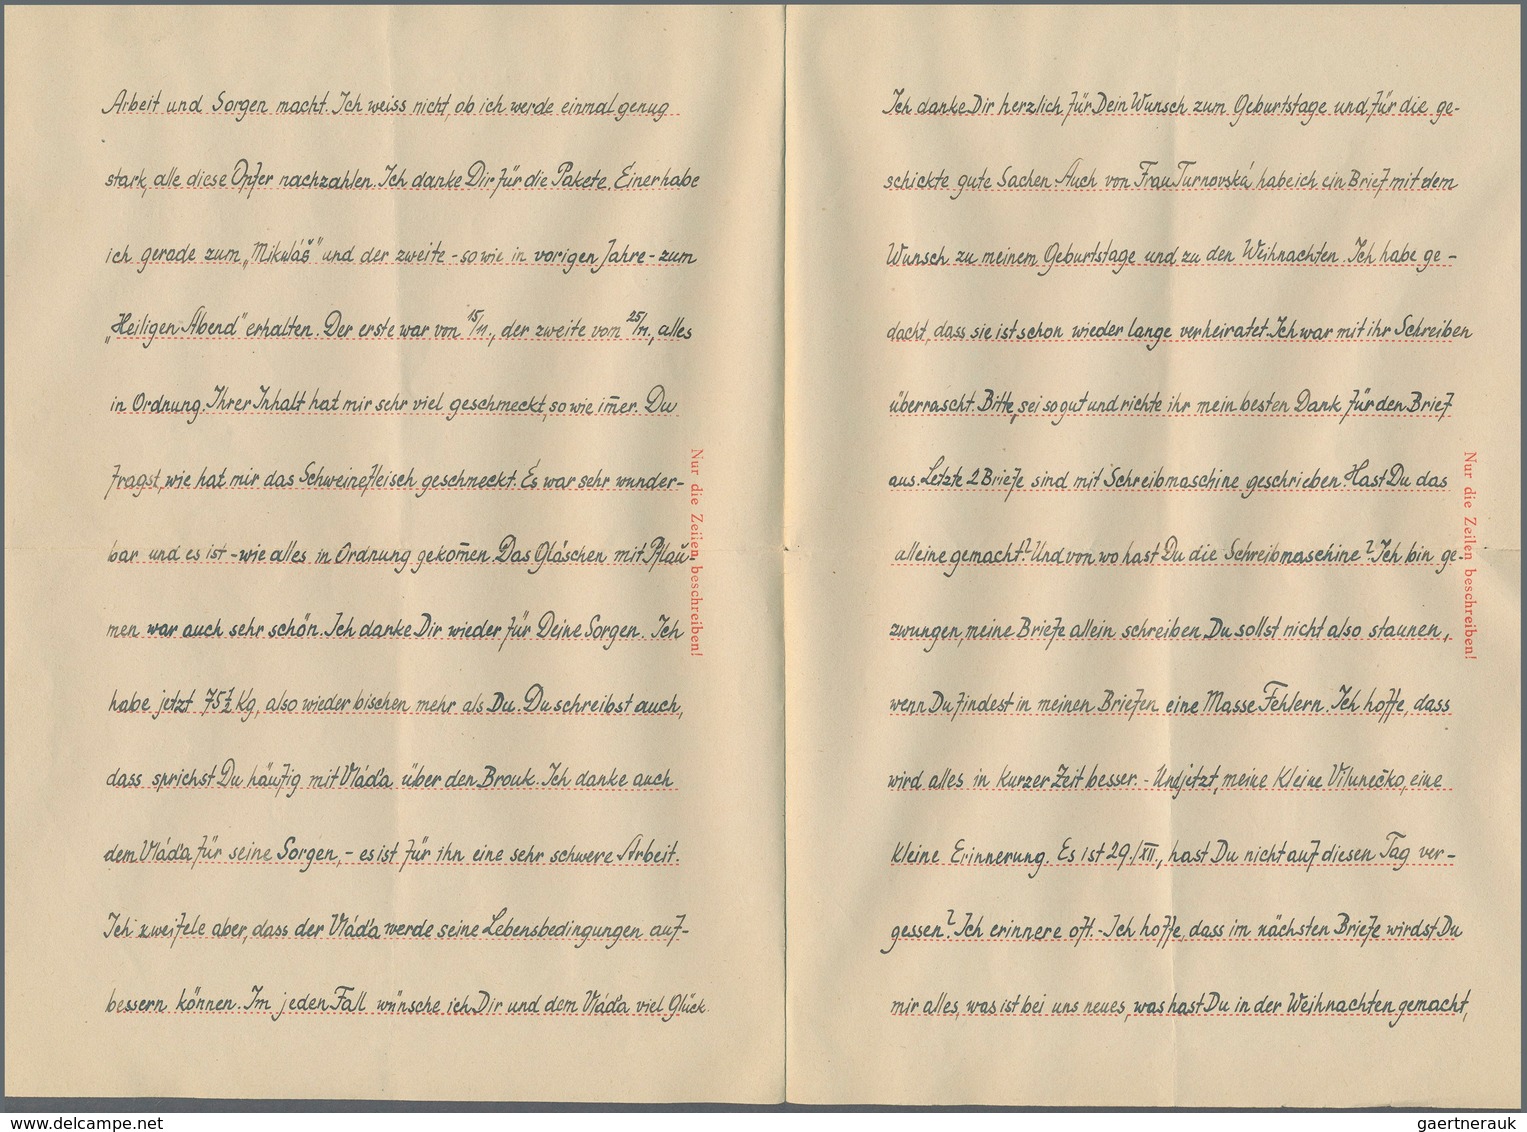 Arbeit und Sorgen macht. Ich weiss nicht, ob ich werde einmal genug
stark, alle diese Opfer nachzahlen. Ich danke Dir für die Pakete. Einer habe
ich gerade zum „Mikuláš" und der zweite - so wie in vorigen Jahre - zum
„Heiligen Abend" erhalten. Der erste war von 15/11., der zweite vom 25/11., alles
in Ordnung. Ihrer Inhalt hat mir sehr viel geschmeckt, so wie im̄er. Du
fragst, wie hat mir das Schweinefleisch geschmeckt. Es war sehr wunder-
bar und es ist - wie alles in Ordnung gekom̄en. Das Gläschen mit Pflau-
men war auch sehr schön. Ich danke Dir wieder für Deine Sorgen. Ich
habe jetzt 75½ Kg, also wieder bischen mehr als Du. Du schreibst auch,
dass sprichst Du häufig mit Vláďa über den Brouk. Ich danke auch
dem Vláďa für seine Sorgen, - es ist für ihn eine sehr schwere Arbeit.
Ich zweifele aber, dass der Vláďa werde seine Lebensbedingungen auf-
bessern können. Im jeden Fall wünsche ich Dir und dem Vláďa viel Glück.
Nur die Zeilen beschreiben!
Ich danke Dir herzlich für Dein Wunsch zum Geburtstage und für die ge-
schickte gute Sachen. Auch von Frau Turnovská habe ich ein Brief mit dem
Wunsch zu meinem Geburtstage und zu den Weihnachten. Ich habe ge-
dacht, dass sie ist schon wieder lange verheiratet. Ich war mit ihr Schreiben
überrascht. Bitte, sei so gut und richte ihr mein besten Dank für den Brief
aus. Letzte 2 Briefe sind mit Schreibmaschine geschrieben. Hast Du das
alleine gemacht? Und von wo hast Du die Schreibmaschine? Ich bin ge-
zwungen, meine Briefe allein schreiben. Du sollst nicht also staunen,
wenn Du findest in meinen Briefen eine Masse Fehlern. Ich hoffe, dass
wird alles in kurzer Zeit besser. - Und jetzt, meine Kleine Vilunečko, eine
Kleine Erinnerung. Es ist 29./XII., hast Du nicht auf diesen Tag ver-
gessen? Ich erinnere oft. - Ich hoffe, dass im nächsten Briefe wirdst Du
mir alles, was ist bei uns neues, was hast Du in der Weihnachten gemacht,
Nur die Zeilen beschreiben!
www.delcampe.net
gaertnerauk